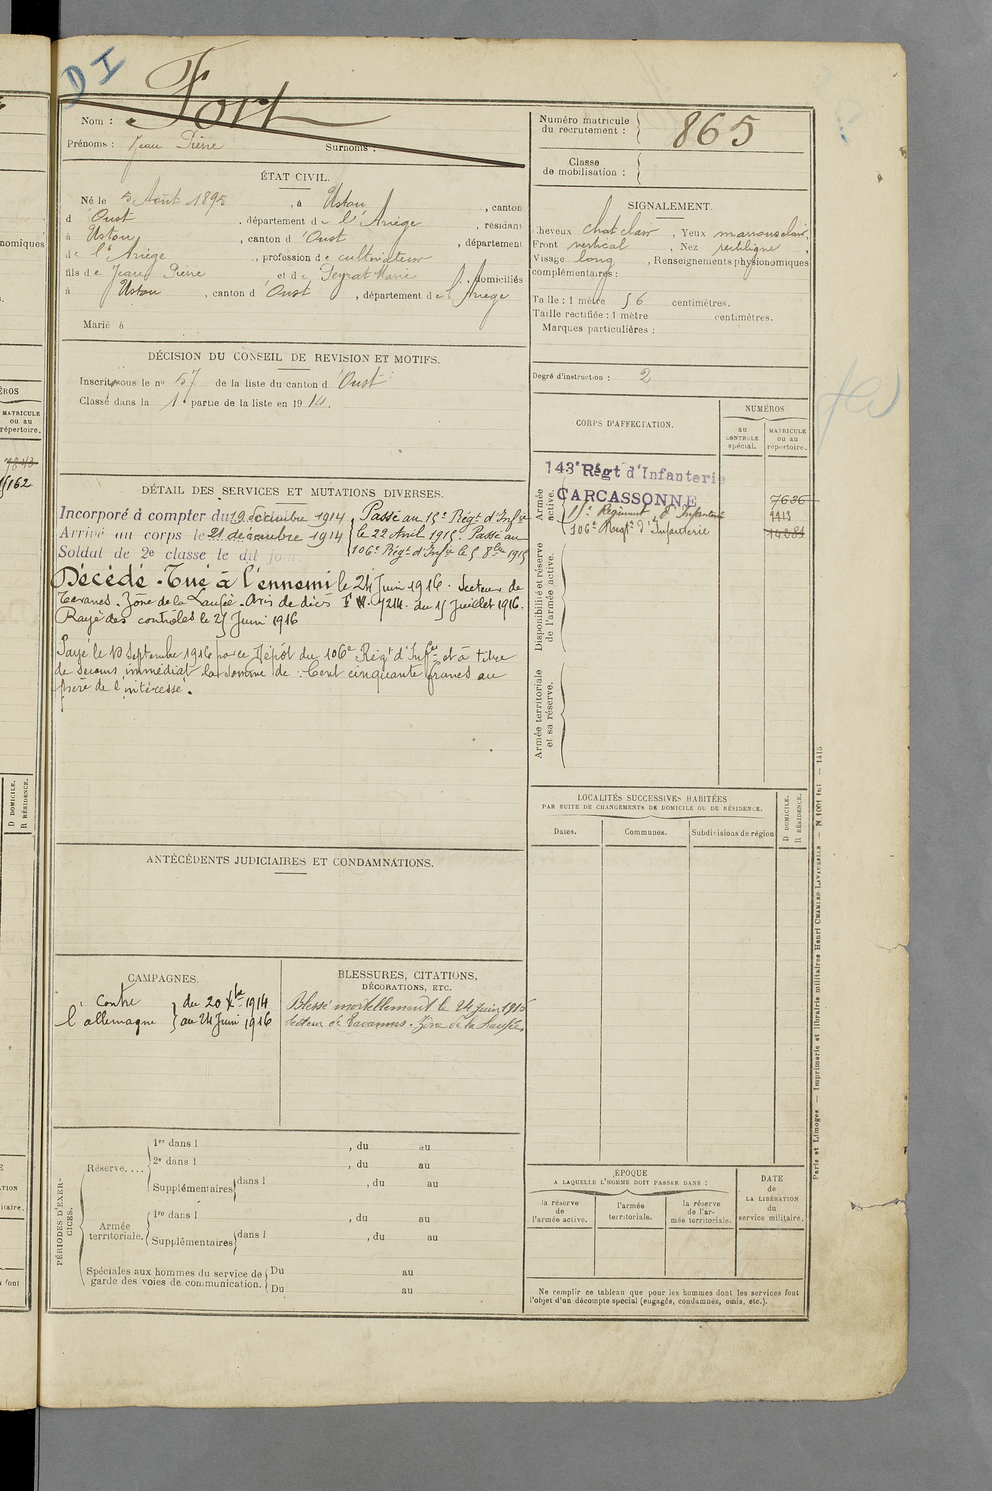 DI
Fort
Nom :
Prénoms : Jean Pierre Surnoms :
Numéro matricule
du recrutement : 865
Classe
de mobilisation :
ÉTAT CIVIL.
Né le 5 Août 1895, à Ustou, canton
d'Oust, département de l'Ariège, résidant
à Ustou, canton d'Oust, département
de l'Ariège, profession de cultivateur
fils de Jean Pierre et de Peyrat Marie, domiciliés
à Ustou, canton d'Oust, département de l'Ariège
Marié à
SIGNALEMENT.
Cheveux chat clair, Yeux marrons clair,
Front vertical, Nez rectiligne
Visage long, Renseignements physionomiques
complémentaires :
Taille : 1 mètre 56 centimètres.
Taille rectifiée : 1 mètre centimètres.
Marques particulières :
Degré d'instruction : 2
DÉCISION DU CONSEIL DE REVISION ET MOTIFS.
Inscrit sous le no 57 de la liste du canton d'Oust
Classé dans la 1e partie de la liste en 1914.
CORPS D'AFFECTATION.
NUMÉROS
au
CONTRÔLE
spécial.
MATRICULE
ou au
répertoire.
Armée
active.
143e Régt d'Infanterie
CARCASSONNE 7636
15e Régiment d'Infanterie
106e Régt d'Infanterie
Disponibilité et réserve
de l'armée active.
Armée territoriale
et sa réserve.
DÉTAIL DES SERVICES ET MUTATIONS DIVERSES.
Incorporé à compter du 19 décembre 1914, Passé au 15e Régt d'Infie
Arrivé au corps le 21 décembre 1914 le 22 Avril 1915. Passé au
Soldat de 2e classe le dit jour. 106e Régt d'Infie le 5 8bre 1915
Décédé. Tué à l'ennemi le 24 Juin 1916. Secteur de
Tavanes. Zône de la Laufée. Avis de décès 7214 du 15 Juillet 1916.
Rayé des contrôles le 25 Juin 1916
Payé le 10 Septembre 1916 par le Dépôt du 106e Régt d'Infie et à titre
de secours immédiat la somme de : Cent cinquante francs au
père de l'intéressé.
LOCALITÉS SUCCESSIVES HABITÉES
PAR SUITE DE CHANGEMENTS DE DOMICILE OU DE RÉSIDENCE.
D DOMICILE.
R RÉSIDENCE.
Dates. Communes. Subdivisions de région
ANTÉCÉDENTS JUDICIAIRES ET CONDAMNATIONS.
CAMPAGNES.
Contre du 20 Xbre 1914
l'allemagne au 24 Juin 1916
BLESSURES, CITATIONS,
DÉCORATIONS, ETC.
Blessé mortellement le 24 juin 1916
secteur de Tavannes. Zône de la Laufée
PÉRIODES D'EXERCICES.
Réserve....
1re dans l , du au
2e dans l , du au
Supplémentaires dans l , du au
Armée
territoriale.
1re dans l , du au
Supplémentaires dans l , du au
Spéciales aux hommes du service de
garde des voies de communication.
Du au
Du au
ÉPOQUE
A LAQUELLE L'HOMME DOIT PASSER DANS :
la réserve
de
l'armée active.
l'armée
territoriale.
la réserve
de l'ar-
mée territoriale.
DATE
de
LA LIBÉRATION
du
service militaire.
Ne remplir ce tableau que pour les hommes dont les services font
l'objet d'un décompte spécial (engagés, condamnés, omis, etc.).
Paris et Limoges. — Imprimerie et librairie militaires Henri CHARLES-LAVAUZELLE
nomiques
ÉROS
MATRICULE
ou au
répertoire.
7843
D DOMICILE.
R RÉSIDENCE.